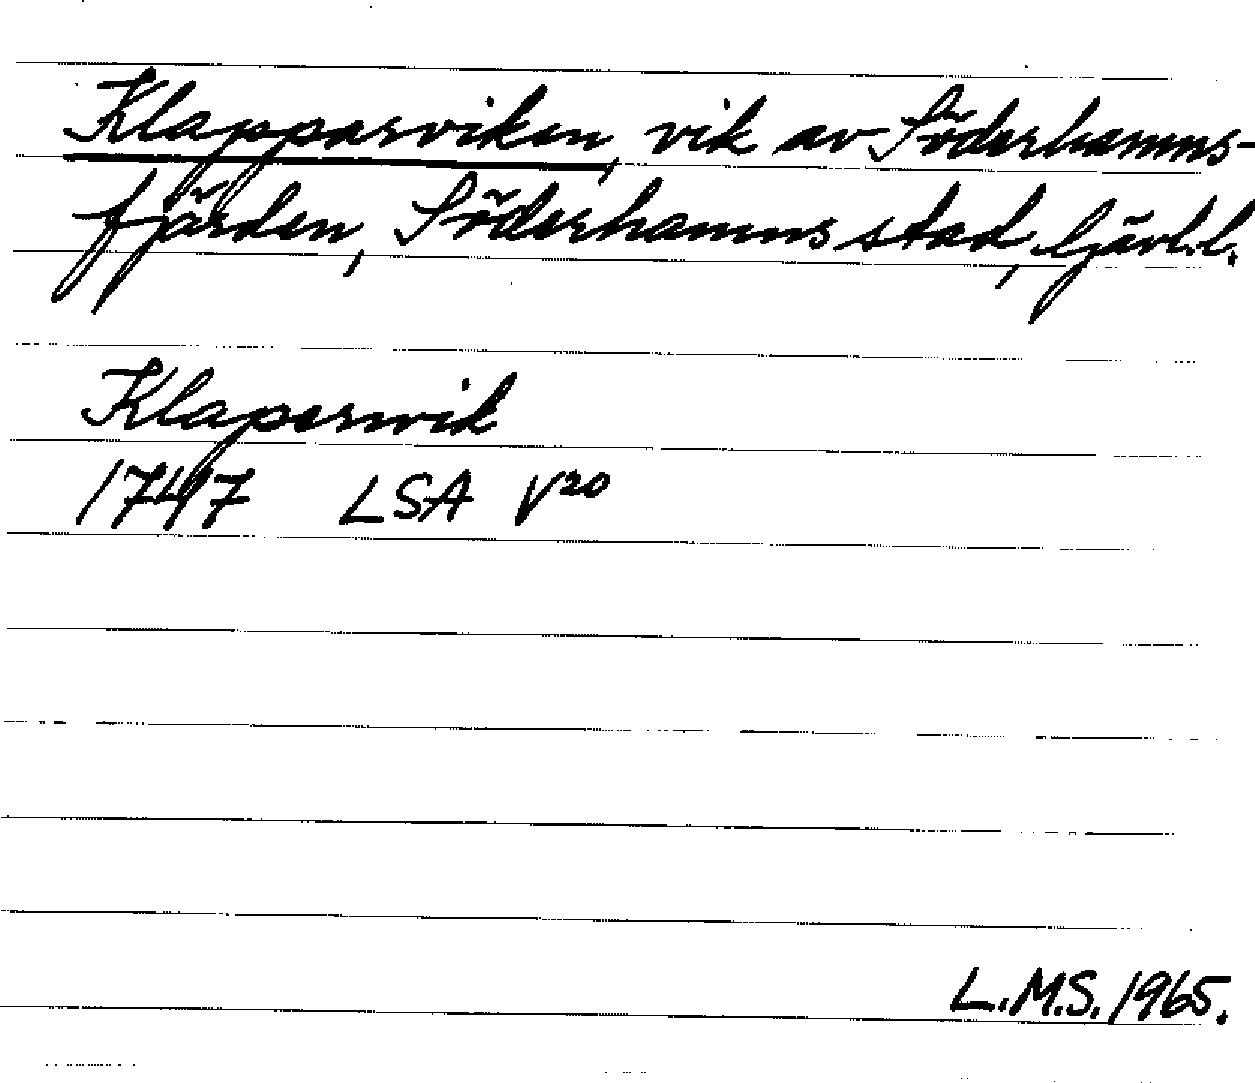 Klapparviken, vik av Söderhamns-
fjärden, Söderhamns stad, Gävl.l.
Klaperwik
1747 LSA V20
L.M.S. 1965.